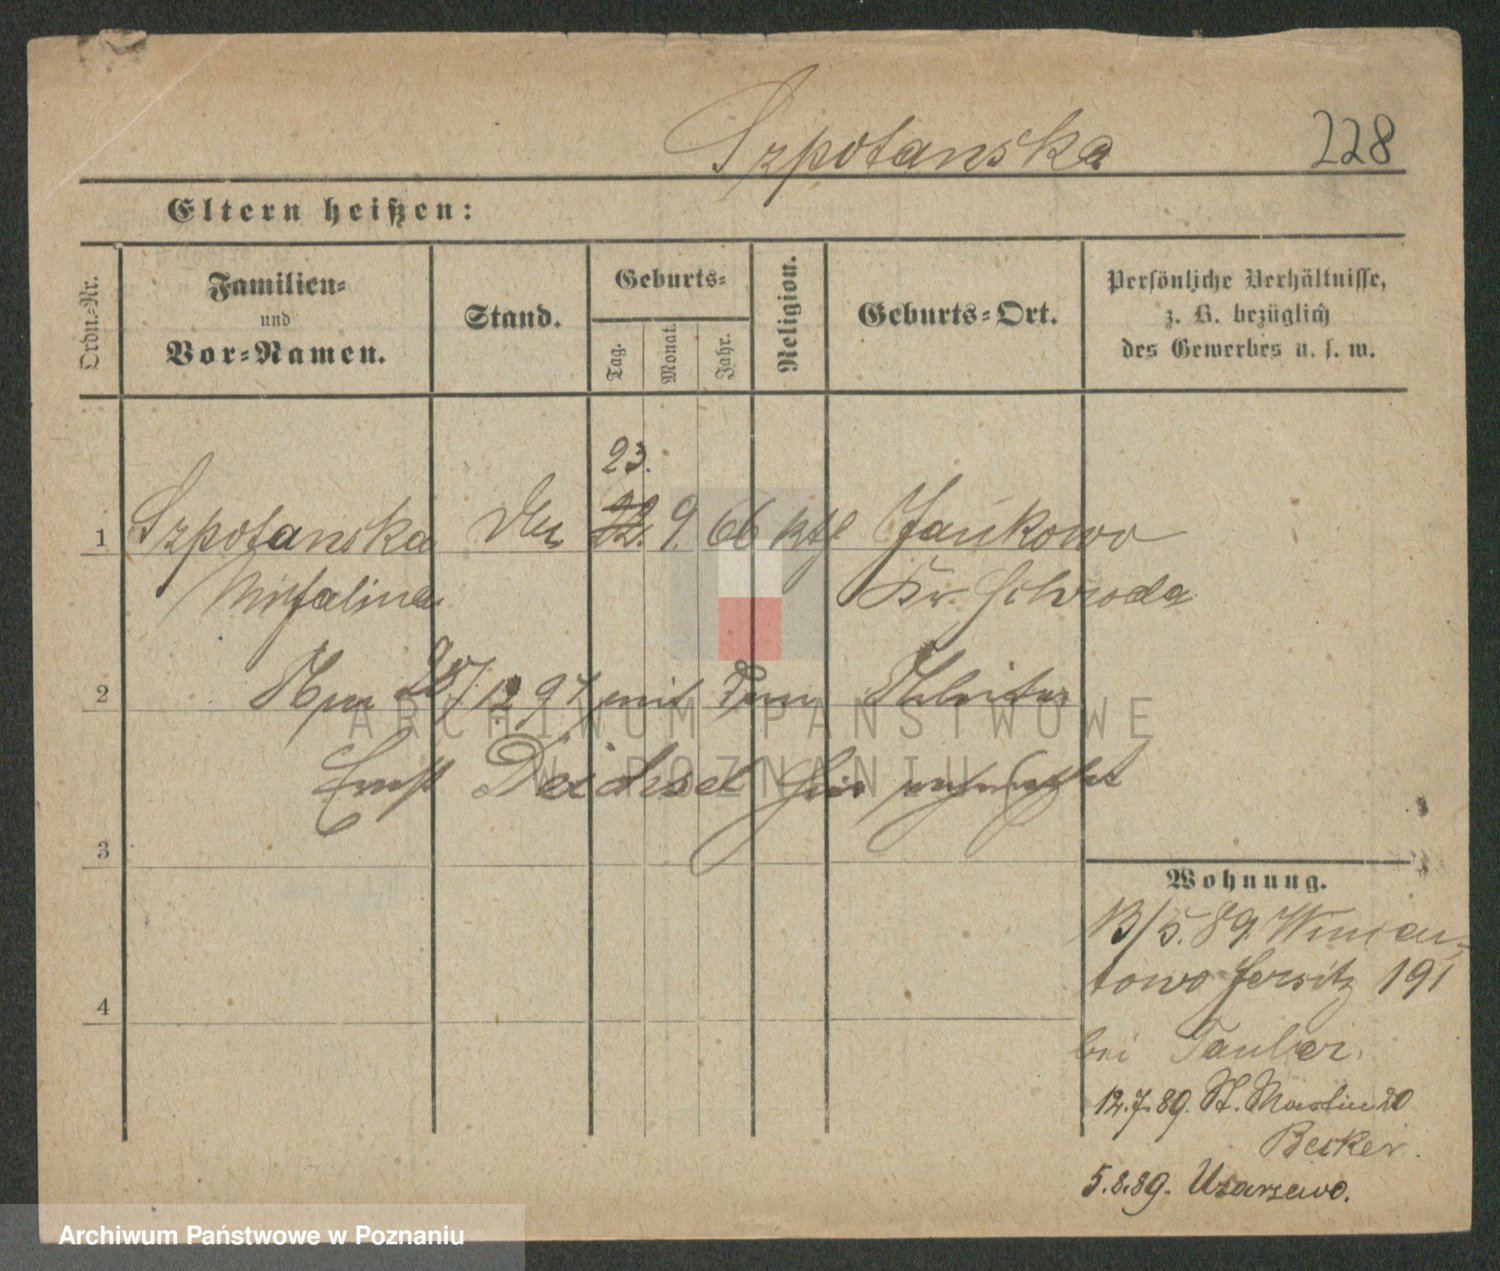 Szpotanska 228
Eltern heißen:
Ordn.-Nr.
Familien-
und
Vor-Namen.
Stand.
Geburts-
Tag.
Monat.
Jahr.
Religion.
Geburts-Ort.
Persönliche Verhältnisse,
z. B. bezüglich
des Gewerbes u. s. w.
23.
1 Szpotanska 22. 9. 66 ktl Jankowo
Michalina Kr. Schroda
2 Am 28/12 97 mit dem Arbeiter
Ernst Deichsel hier verheirathet
3
Wohnung.
13/5. 89. Winiar-
towo Jersitz 191
4
bei Tauber.
12.7.89. St. Martin 20
Becker.
5.8.89. Uzarzewo.
ARCHIWUM PAŃSTWOWE
W POZNANIU
Archiwum Państwowe w Poznaniu